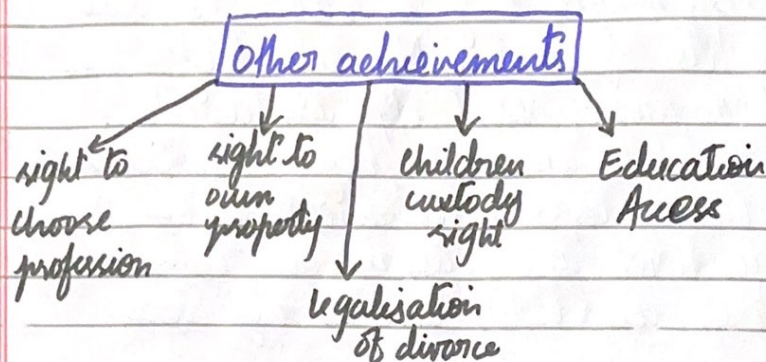 Other achievements
right to
choose
profession
right to
own
property
legalisation
of divorce
children
custody
right
Education
Access